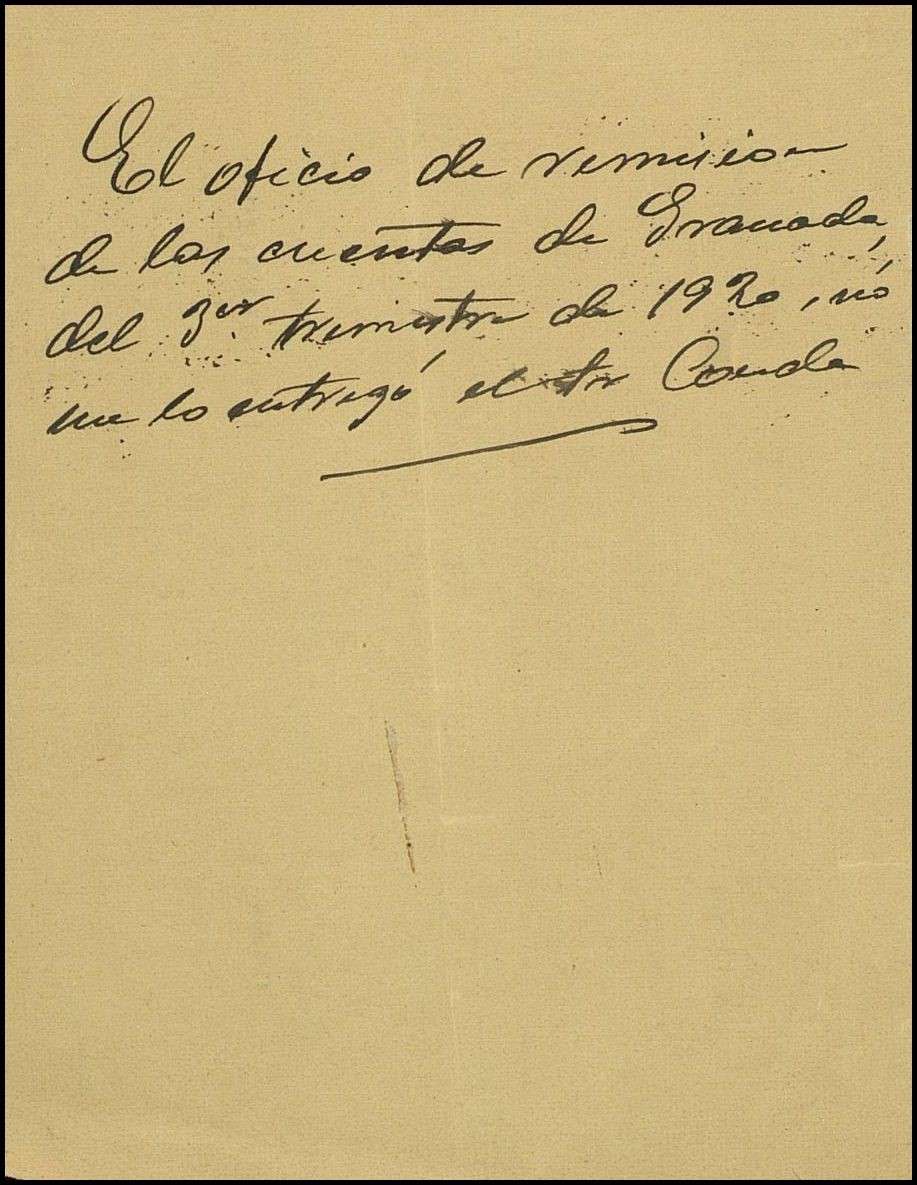 El oficio de remision
de las cuentas de Granada,
del 3er trimestre de 1920, nó
me lo entregó el Sr Conde